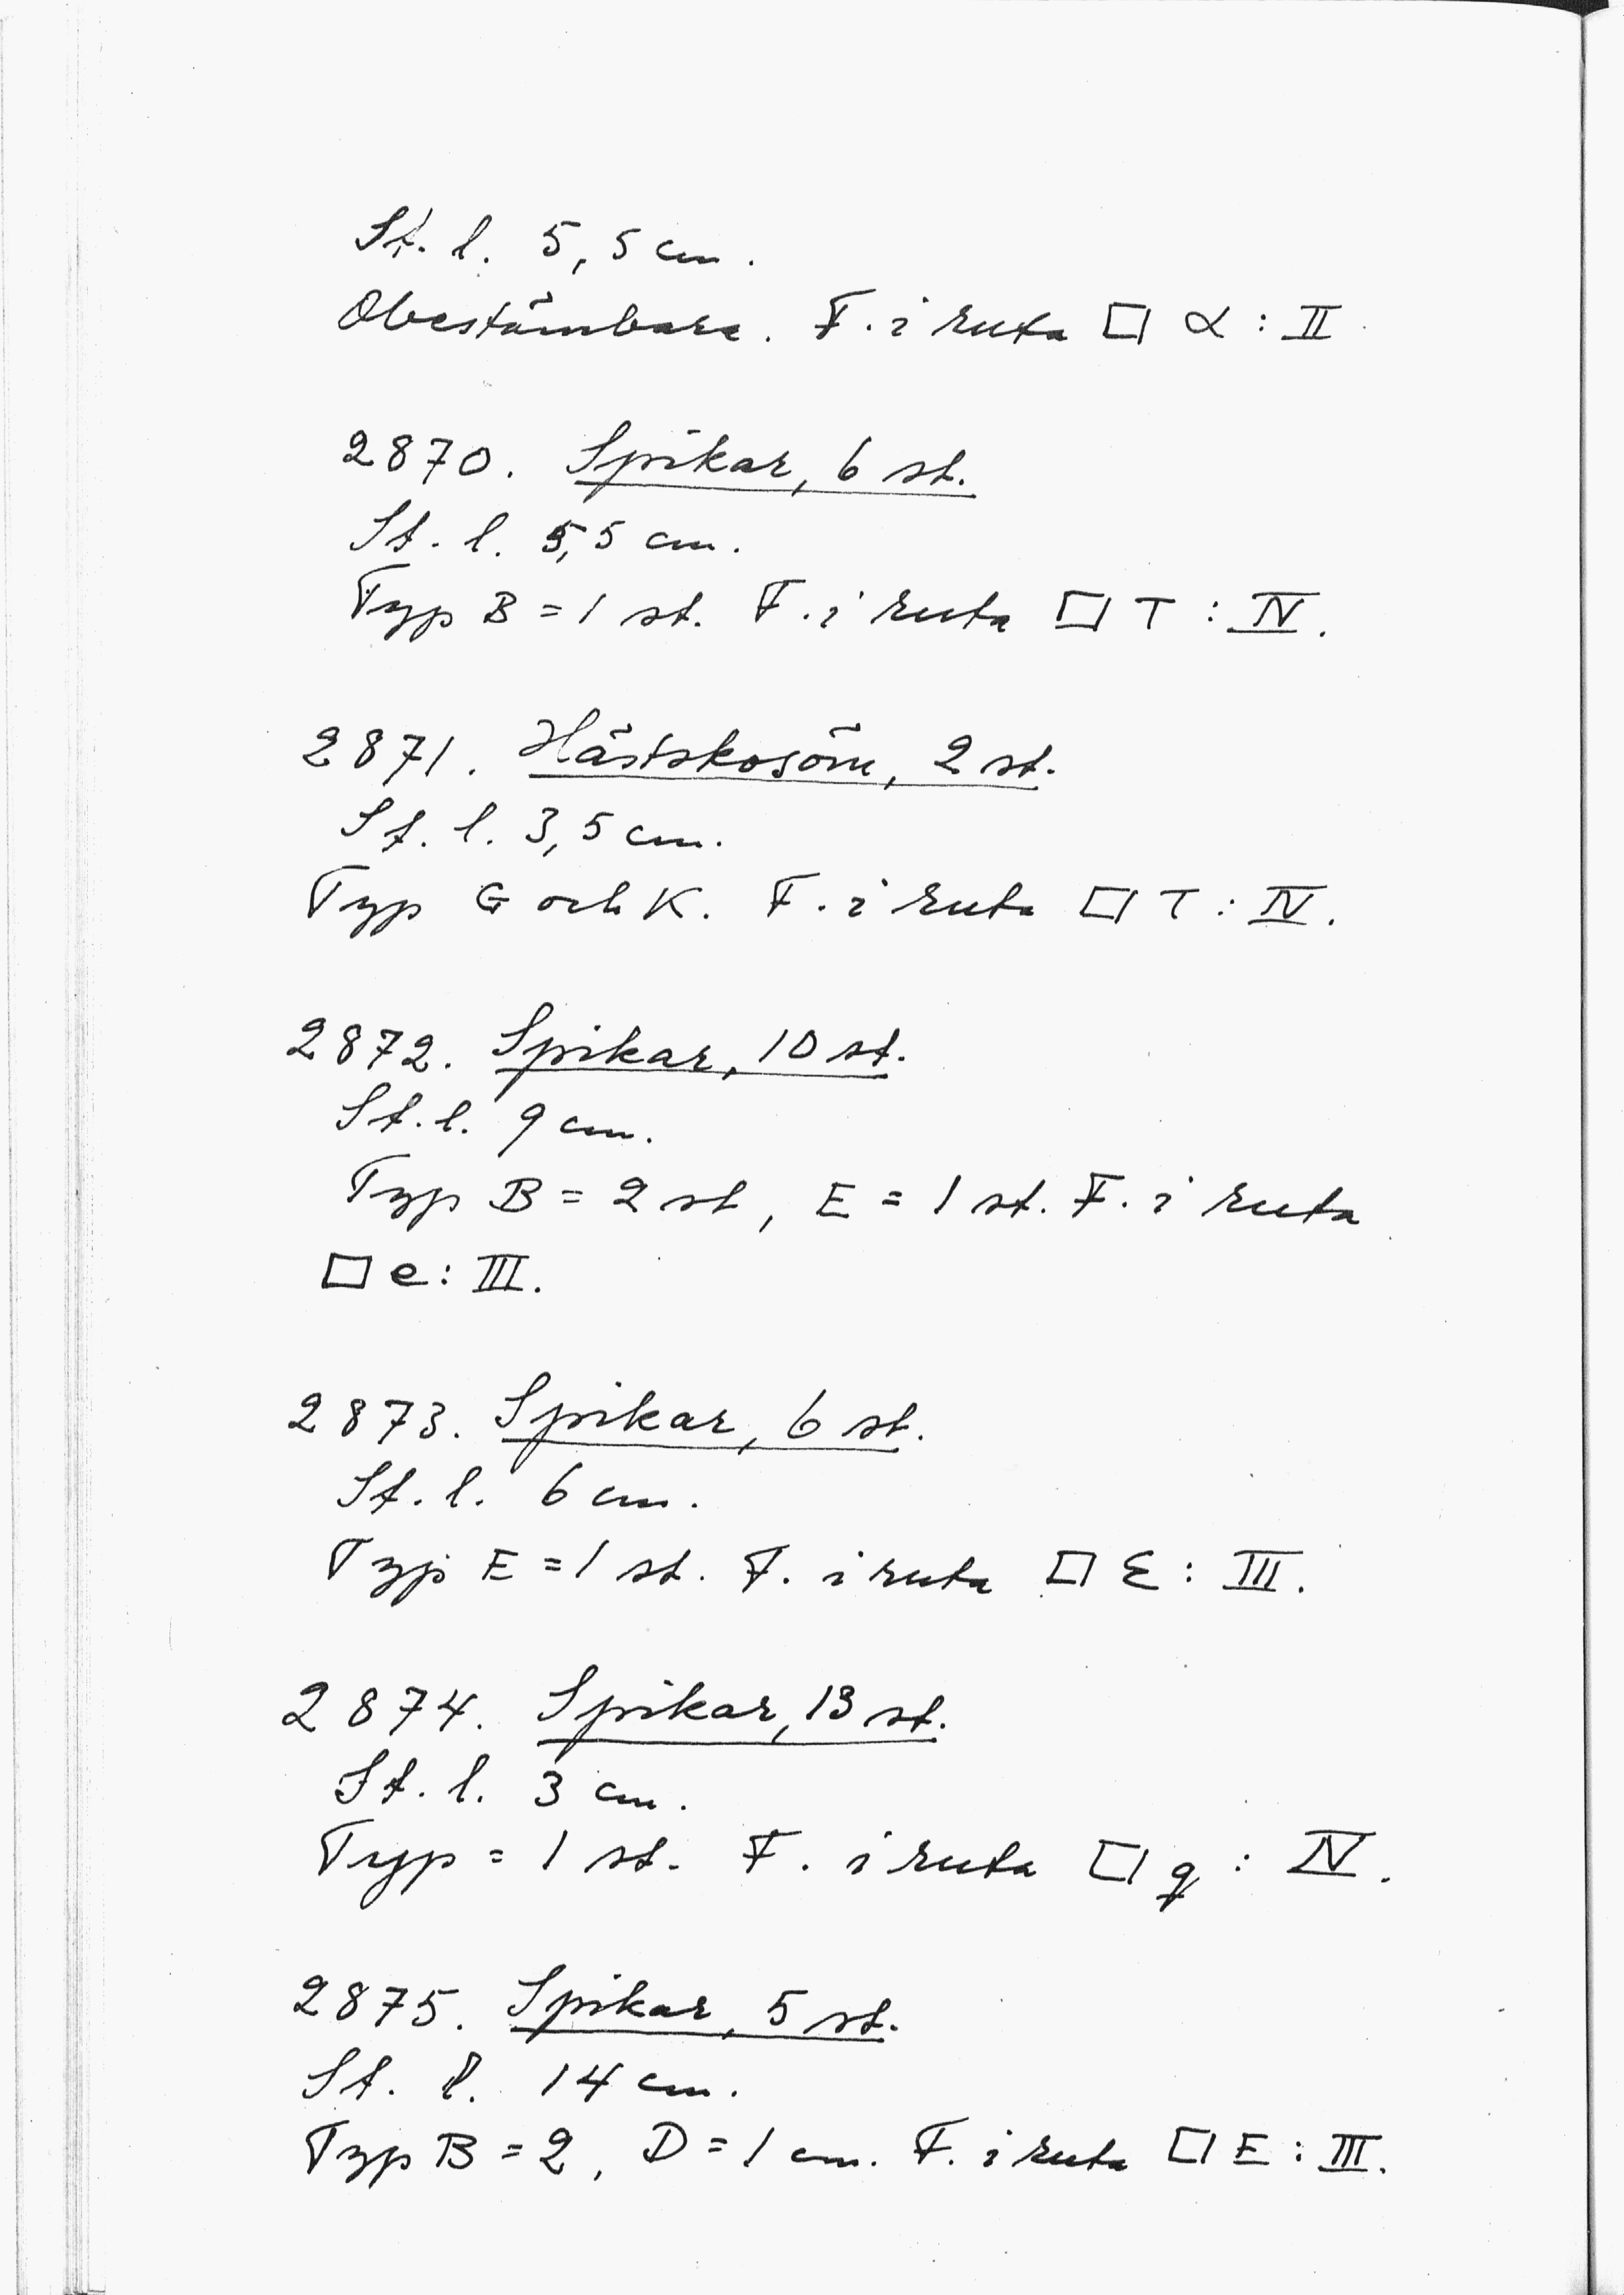 St. l. 5,5 cm.
Obestämbara. F. i ruta □ α : II
2870. Spikar, 6 st.
St. l. 5,5 cm.
Typ B = 1 st. F. i ruta □ T : IV.
2871. Hästskosöm, 2 st.
St. l. 3,5 cm.
Typ G och K. F. i ruta □ T : IV.
2872. Spikar, 10 st.
St. l. 9 cm.
Typ B = 2 st, E = 1 st. F. i ruta
□ e : III.
2873. Spikar, 6 st.
St. l. 6 cm.
Typ E = 1 st. F. i ruta □ Ɛ : III.
2874. Spikar, 13 st.
St. l. 3 cm.
Typ = 1 st. F. i ruta □ q : IV.
2875. Spikar, 5 st.
St. l. 14 cm.
Typ B = 2, D = 1 cm. F. i ruta □ E : III.